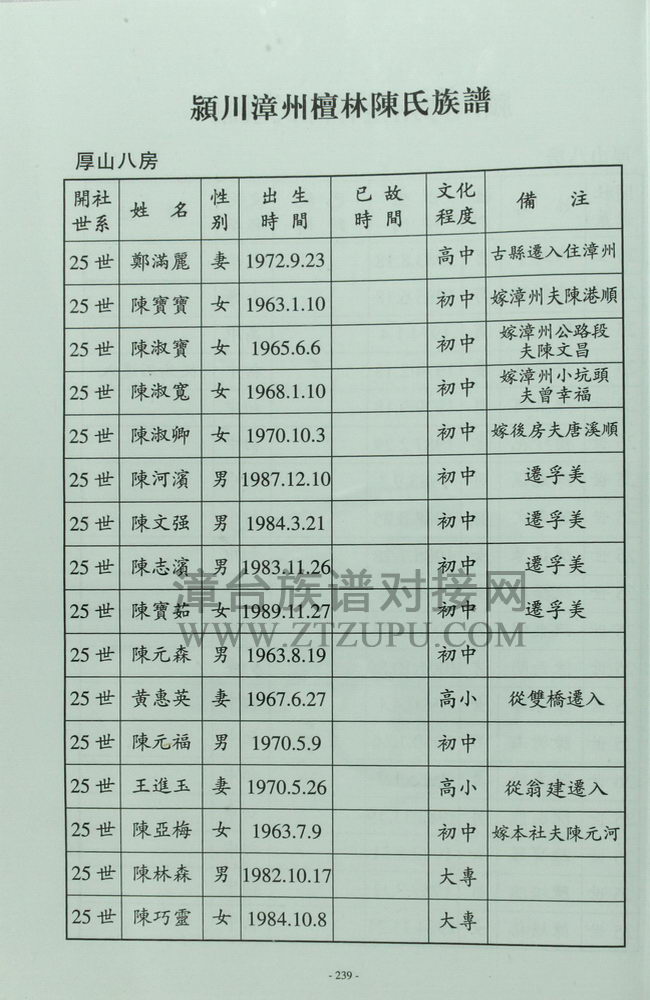 潁川漳州檀林陳氏族譜
厚山八房
開社世系 姓 名 性别 出生時間 已故時間 文化程度 備 注
25世 鄭滿麗 妻 1972.9.23 高中 古縣遷入住漳州
25世 陳寶寶 女 1963.1.10 初中 嫁漳州夫陳港順
25世 陳淑寶 女 1965.6.6 初中 嫁漳州公路段夫陳文昌
25世 陳淑寬 女 1968.1.10 初中 嫁漳州小坑頭夫曾幸福
25世 陳淑卿 女 1970.10.3 初中 嫁後房夫唐溪順
25世 陳河濱 男 1987.12.10 初中 遷孚美
25世 陳文强 男 1984.3.21 初中 遷孚美
25世 陳志濱 男 1983.11.26 初中 遷孚美
25世 陳寶茹 女 1989.11.27 初中 遷孚美
25世 陳元森 男 1963.8.19 初中
25世 黄惠英 妻 1967.6.27 高小 從雙橋遷入
25世 陳元福 男 1970.5.9 初中
25世 王進玉 妻 1970.5.26 高小 從翁建遷入
25世 陳亞梅 女 1963.7.9 初中 嫁本社夫陳元河
25世 陳林森 男 1982.10.17 大專
25世 陳巧靈 女 1984.10.8 大專
漳台族谱对接网
WWW.ZTZUPU.COM
- 239 -